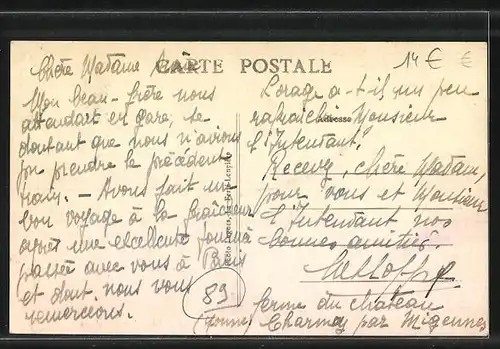 CARTE POSTALE
14 €
€
Chère Madame
Mon beau-frère nous
attendait en gare, se
doutant que nous n'avions
pu prendre le précédent
train. - Avons fait un
bon voyage à la fraîcheur
après une excellente journée
passée avec vous à Paris
et dont nous vous
remercions.
L'orage a-t-il un peu
rafraîchi Monsieur
Adresse
l'Intendant?
Recevez, chère Madame,
pour vous et Monsieur
l'Intendant nos
bonnes amitiés.
ferme du château
Charmoy par Migennes
(Yonne)
89